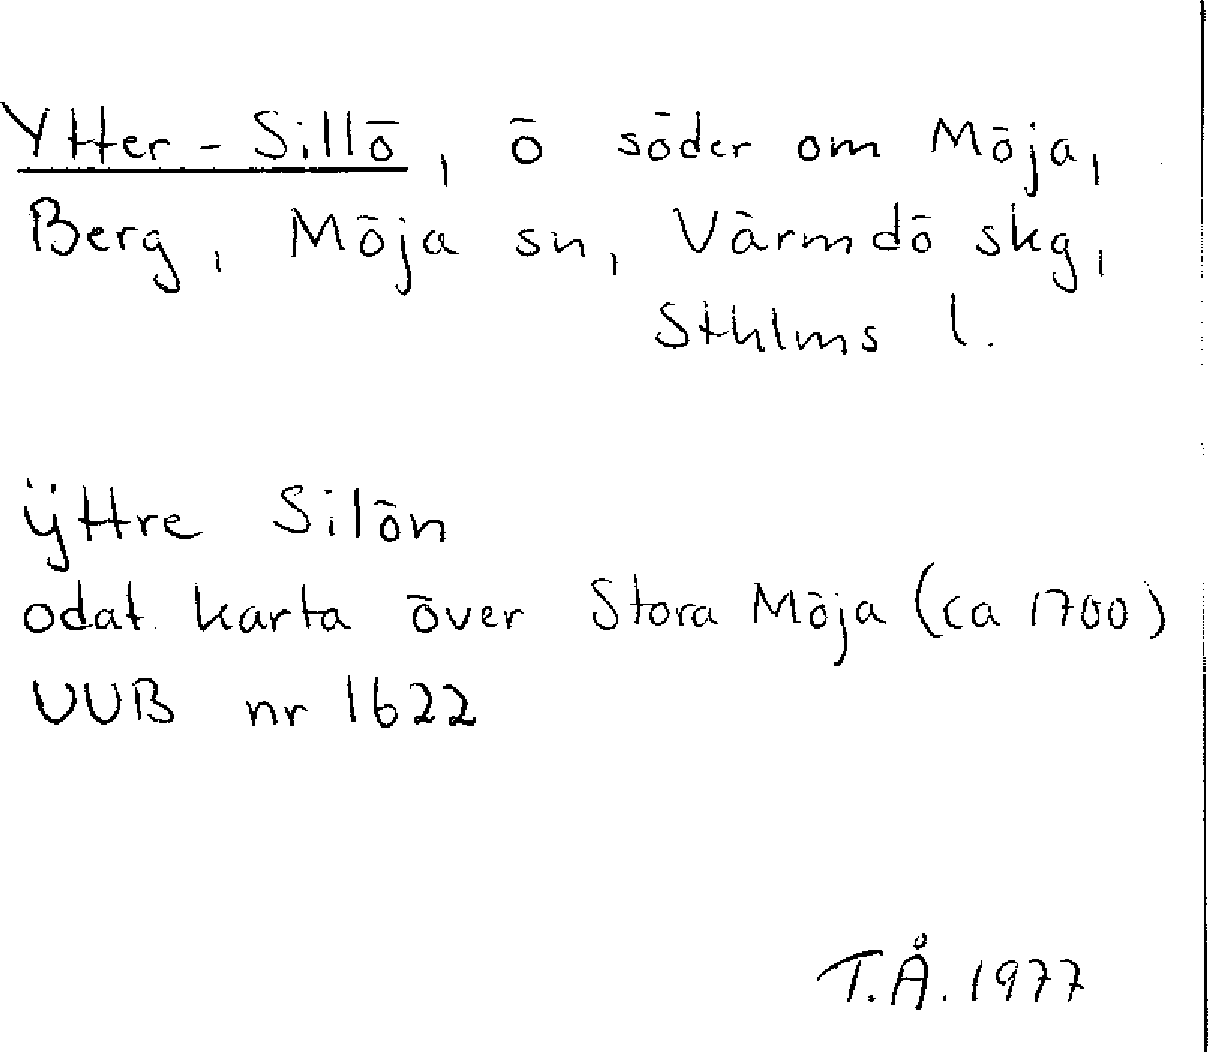 Ytter-Sillö, ö söder om Möja,
Berg, Möja sn, Värmdö skg,
Sthlms l.
ÿttre Silön
odat. karta över Stora Möja (ca 1700)
UUB nr 1622
T.Å. 1977